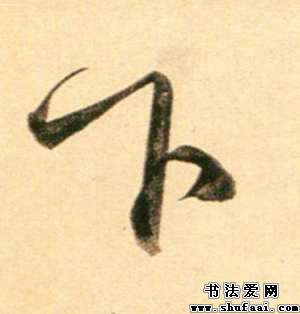 下
书法爱网
www.shufaai.com